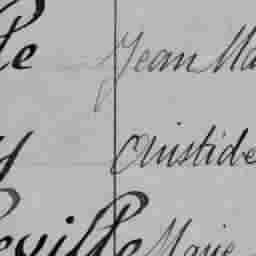 le Jean Ma
y Aristide
eville Marie